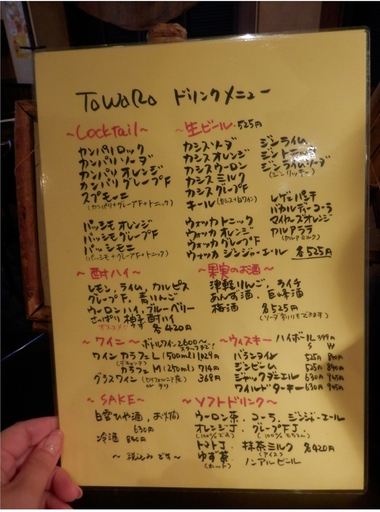 TOWARO ドリンクメニュー
~Cocktail~
カンパリロック
カンパリソーダ
カンパリオレンジ
カンパリグレープF
スプモーニ
(カンパリ+グレープF+トニック)
パッシモオレンジ
パッシモグレープF
パッシモーニ
(パッシモ+グレープF+トニック)
~生ビール~ 525円
カシスソーダ
カシスオレンジ
カシスウーロン
カシスミルク
カシスグレープF
キール
ウォッカトニック
ウォッカオレンジ
ウォッカグレープF
ウォッカジンジャーエール
ジンライム
ジントニック
ジンライムソーダ
(ジンリッキー)
レゲエパンチ
バカルディコーラ
マイヤーズオレンジ
各525円
~酎ハイ~
レモン、ライム、カルピス
グレープF、青りんご
ウーロンハイ、ブルーベリー
さっぱり柚子酎ハイ
各420円
~果実のお酒~
津軽りんご、ライチ
あんず酒、
梅酒 各525円
(ソーダ割りもできます)
~ワイン~ ボトルワイン2600~
ワイン カラフェL(500ml)1029円
カラフェM(250ml)914円
グラスワイン 368円
~ウィスキー~ ハイボール399円
S W
バランタイン 525円 840円
ジンビーム 525円 840円
ジャックダニエル 630円 945円
ワイルドターキー 630円 945円
~SAKE~
白雪ひや酒、お燗
630円
冷酒 840円
~税込みです~
~ソフトドリンク~
ウーロン茶、コーラ、ジンジャーエール
オレンジJ、グレープFJ
トマトJ、抹茶ミルク 各420円
ゆず茶 (アイス)
(ホット) ノンアルビール